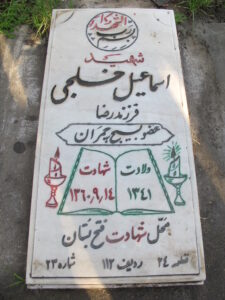 شهید
اسماعیل خلجی
فرزند رضا
عضو بسیج چمران
ولادت شهادت
۱۳۴۱ ۱۳۶۰،۹،۱۴
محل شهادت فتح بستان
قطعه ۲۴ ردیف ۱۱۲ شماره ۲۳